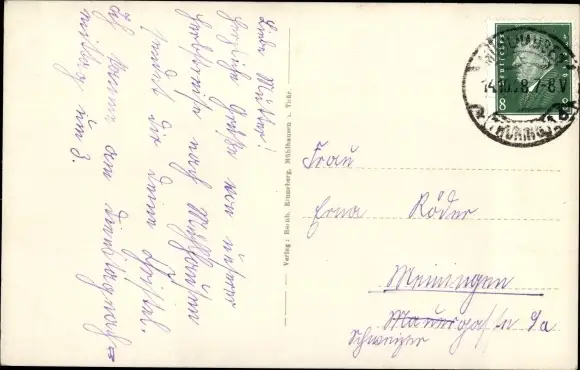 Liebe Mutter!
herzliche Grüße von unserer
Herbstreise nach Mühlhausen
sendet Dir Deine
Ich komme am Dienstagnach-
mittag um 3.
Verlag: Bernh. Mühlhausen i. Thür.
MÜHLHAUSEN
14.10.28.7-8 V
(THÜRING.)
8
Frau
Erna Röder
Meiningen
Mauergasse 9a
Schweizer